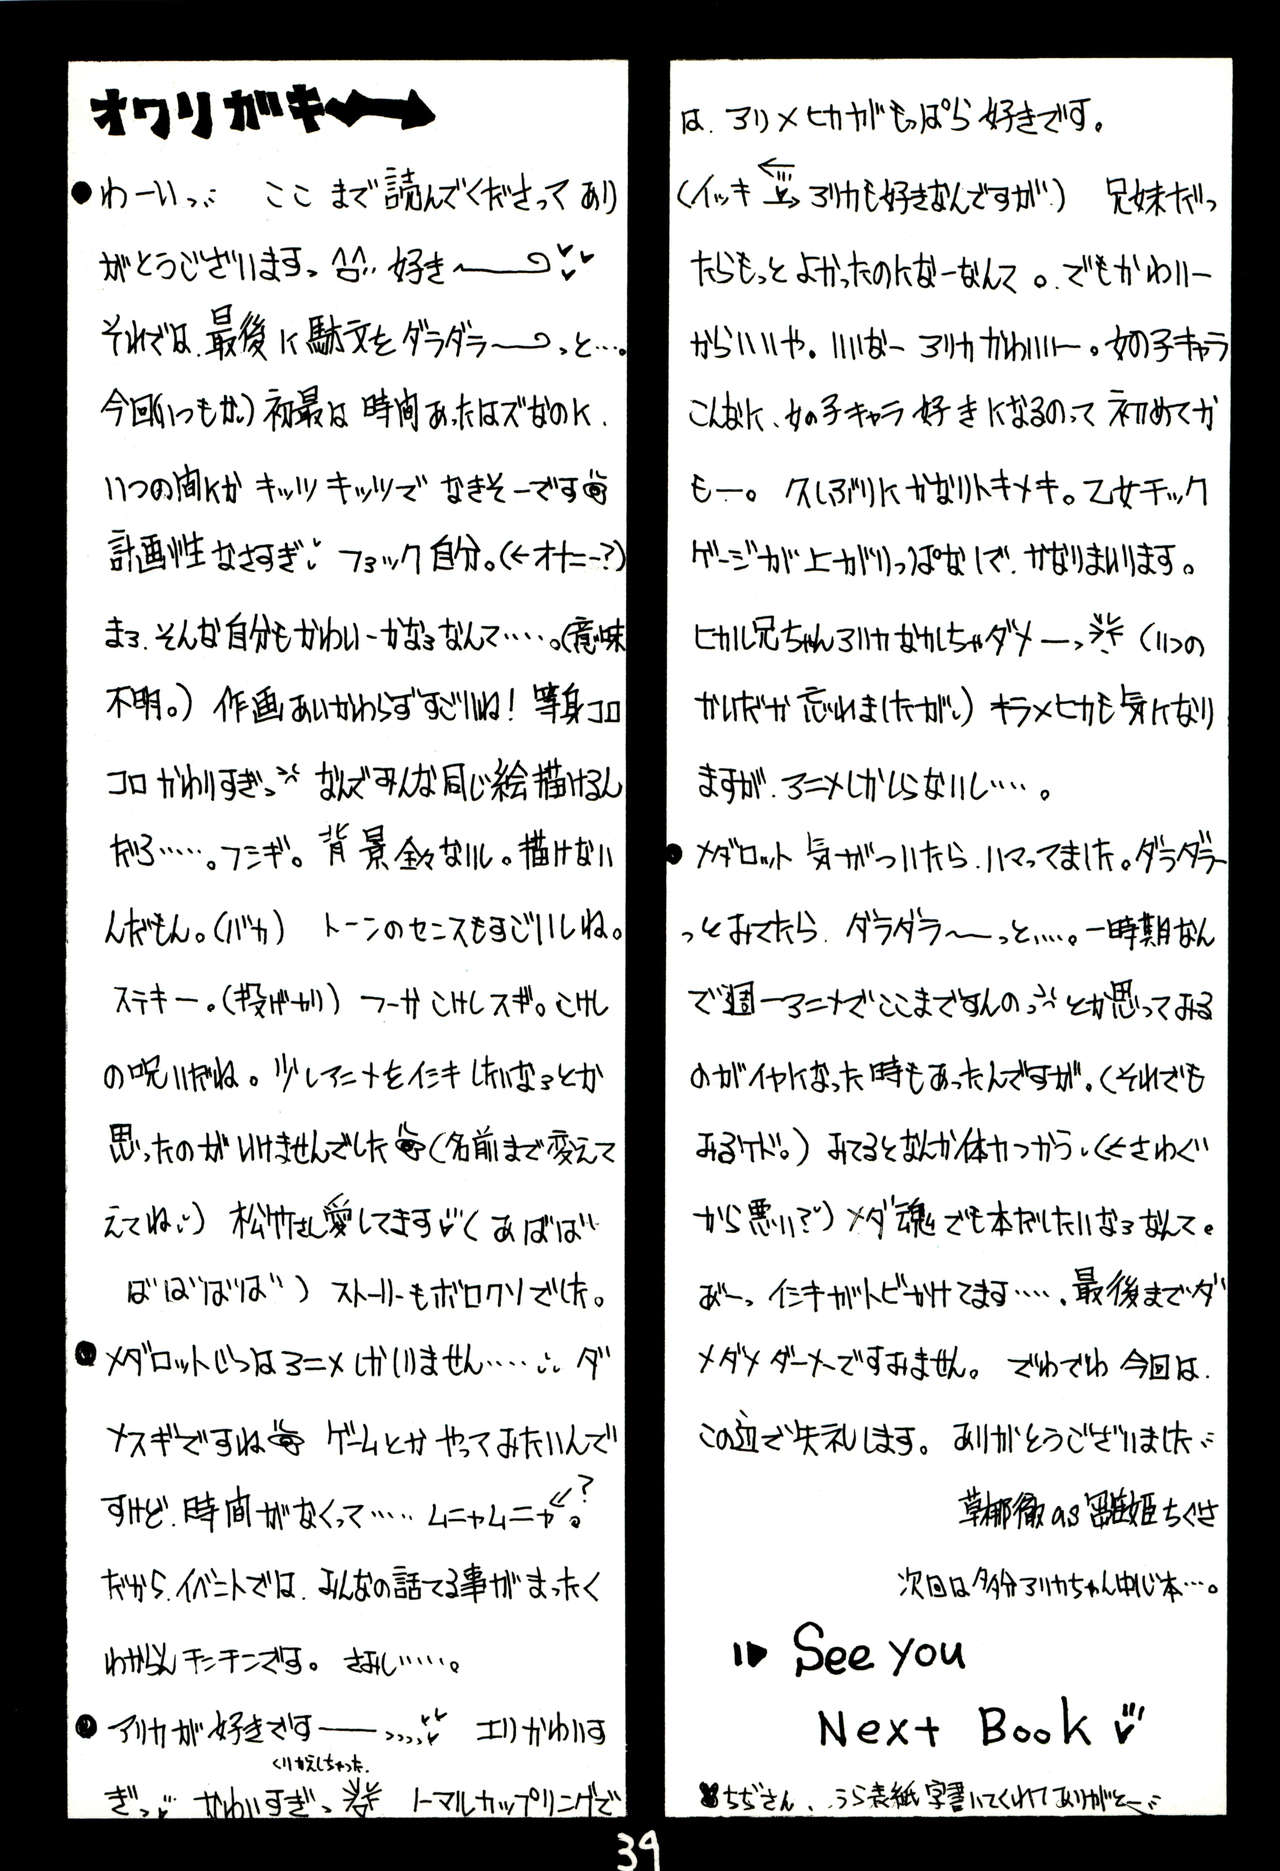 オワリガキ
●わーいっ ここまで読んでくださってあり
がとうございますっ 好き〜
それでは、最後に駄文をダラダラ〜っと…。
今回(いつもか)初最は時間あったはズなのに、
いつの間にかキッツキッツでなきそーです
計画性なさすぎ フョック自分。(←オナニー?)
まろ、そんな自分もかわいーかなろなんて……。(意味
不明。) 作画あいかわらずすごいね! 等身コロ
コロかわいすぎっ なんでみんな同じ絵描けるん
だろ……。フシギ。背景全々ないし。描けない
んだもん。(バカ) トーンのセンスもすごいしね。
ステキー。(投げやり) つーかこけしスギ。こけし
の呪いだね。少しアニメをイシキしたいなろとか
思ったのがいけませんでした(名前まで変えて
えてね) 松竹さん愛してます(あばば
ばばばば) ストーリーもボロクソでした。
●メダロットじつはアニメしかしりません…… ダ
メスギですね ゲームとかやってみたいんで
すけど、時間がなくって…… ムニャムニャ。?
だから、イベントでは、みんなの話てる事がまったく
わからんチンチンです。さみしい……。
●アリカが好きですーっっっっ エリかわいす
くりかえしちゃった。
ぎっ かわいすぎっ トーマルカップリングで
は、アリ×ヒカがもっぱら好きです。
(イッキ アリカも好きなんですが) 兄妹だっ
たらもっとよかったのになーなんて。でもかわいー
からいいや。いいなーアリカかわいいー。女の子キャラ
こんなに、女の子キャラ好きになるのって初めてか
もー。久しぶりにかなりトキメキ。乙女チック
ゲージが上がりっぱなしで、かなりまいります。
ヒカル兄ちゃんアリカなかしちゃダメーっ (いつの
かいだか忘れましたが) キラ×ヒカも気になり
ますが、アニメしかしらないし……。
●メダロット気がついたら、ハマってました。ダラダラー
っとみてたら、ダラダラ〜っと……。一時期なん
で週一アニメでここまですんのっ とか思ってみる
のがイヤになった時もあったんですが。(それでも
みるケド。) みてるとなんか体力つかう、(←さわぐ
から悪い?) メダ魂でも本だしたいなろなんて。
あ゛ーっ イシキがトビかけてます……、最後までダ
メダメダーメですみません。でわでわ今回は、
この辺で失礼します。ありがとうございました
草那徹as 雛姫ちぐさ
次回は多分アリカちゃん中心本…。
See you
Next Book
ちぢさん、うら表紙字書いてくれてありがとー
39